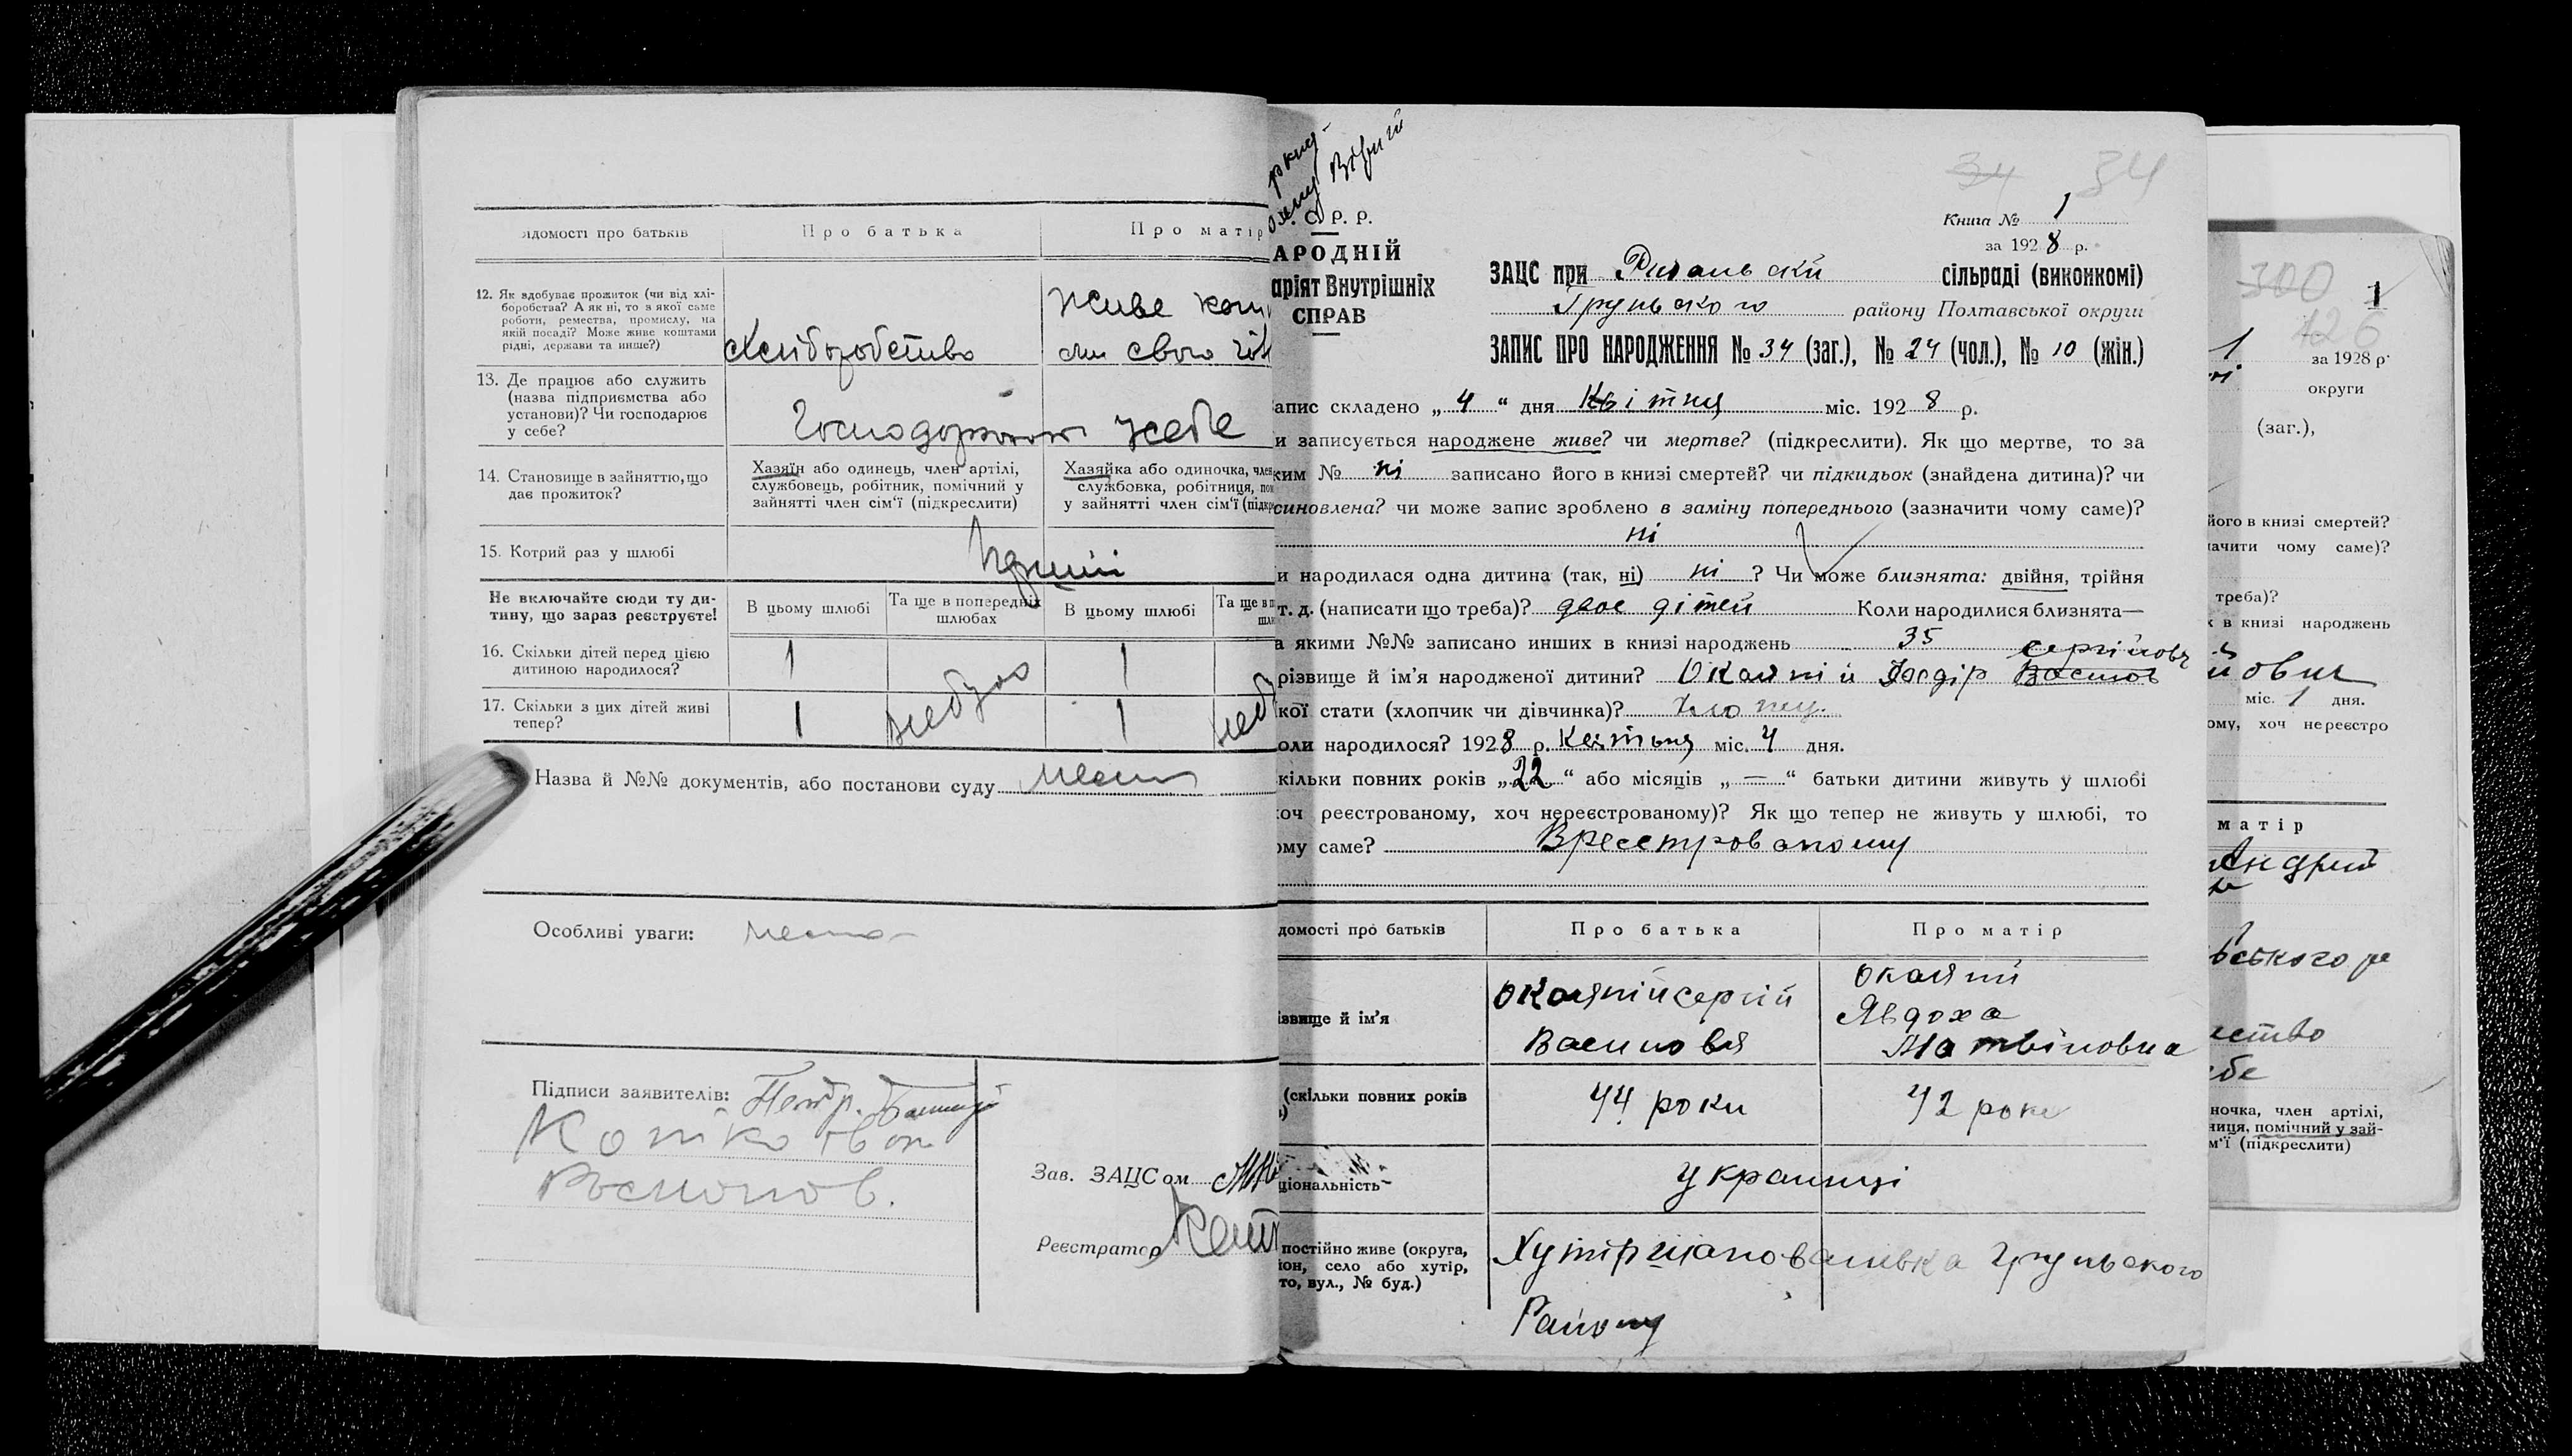 Відомості про батьків
Про батька
Про матір
12. Як здобуває прожиток (чи від хлі-
боробства? А як ні, то з якої саме
роботи, ремества, промислу, на
якій посаді? Може живе коштами
рідні, держави та инше?)
Хліборобство
Живе
свого
13. Де працює або служить
(назва підприємства або
установи)? Чи господарює
у себе?
усебе
14. Становище в зайняттю, що
дає прожиток?
Хазяїн або одинець, член артілі,
службовець, робітник, помічний у
зайнятті член сім'ї (підкреслити)
Хазяйка або одиночка, член
службовка, робітниця,
у зайнятті член сім'ї
15. Котрий раз у шлюбі
Перший
Не включайте сюди ту ди-
тину, що зараз реєструєте!
В цьому шлюбі
Та ще в попередніх
шлюбах
В цьому шлюбі
Та ще в
16. Скільки дітей перед цією
дитиною народилося?
1
небуло
1
17. Скільки з цих дітей живі
тепер?
1
1
Назва й №№ документів, або постанови суду
Особливі уваги:
Підписи заявителів:
Зав. ЗАЦСом
Реєстратор
С. Р. Р.
АРОДНІЙ
аріят Внутрішніх
СПРАВ
34 34
Книга № 1
за 1928 р.
ЗАЦС при сільраді (виконкомі)
Груньского району Полтавської округи
ЗАПИС ПРО НАРОДЖЕННЯ № 34 (заг.), № 24 (чол.), № 10 (жін.)
апис складено „4" дня Квітня міс. 1928 р.
и записується народжене живе? чи мертве? (підкреслити). Як що мертве, то за
ким № ні записано його в книзі смертей? чи підкидьок (знайдена дитина)? чи
синовлена? чи може запис зроблено в заміну попереднього (зазначити чому саме)?
ні
и народилася одна дитина (так, ні) ні ? Чи може близнята: двійня, трійня
т. д. (написати що треба)? двое дітей Коли народилися близнята—
а якими №№ записано инших в книзі народжень 35
Сергійовч
різвище й ім'я народженої дитини? Окаяній Федір Васильов
кої стати (хлопчик чи дівчинка)?
оли народилося? 1928 р. міс. 4 дня.
кільки повних років „22" або місяців „—" батьки дитини живуть у шлюбі
оч реєстрованому, хоч нереєстрованому)? Як що тепер не живуть у шлюбі, то
ому саме? Вреестрованому
домості про батьків
Про батька
Про матір
ізвище й ім'я
Окаяній Сергій
Окаяни
Явдоха
Матвіновна
(скільки повних років
44 роки
42 роки
ціональність
Украинці
постійно живе (округа,
он, село або хутір,
то, вул., № буд.)
Хутір Груньского
Району
300 1
126
1 за 1928 р.
округи
(заг.),
його в книзі смертей?
ачити чому саме)?
треба)?
в книзі народжень
йович
міс. 1 дня.
ому, хоч нереєстро
матір
ського
ство
ебе
ночка, член артілі,
ниця, помічний у зай-
м'ї (підкреслити)